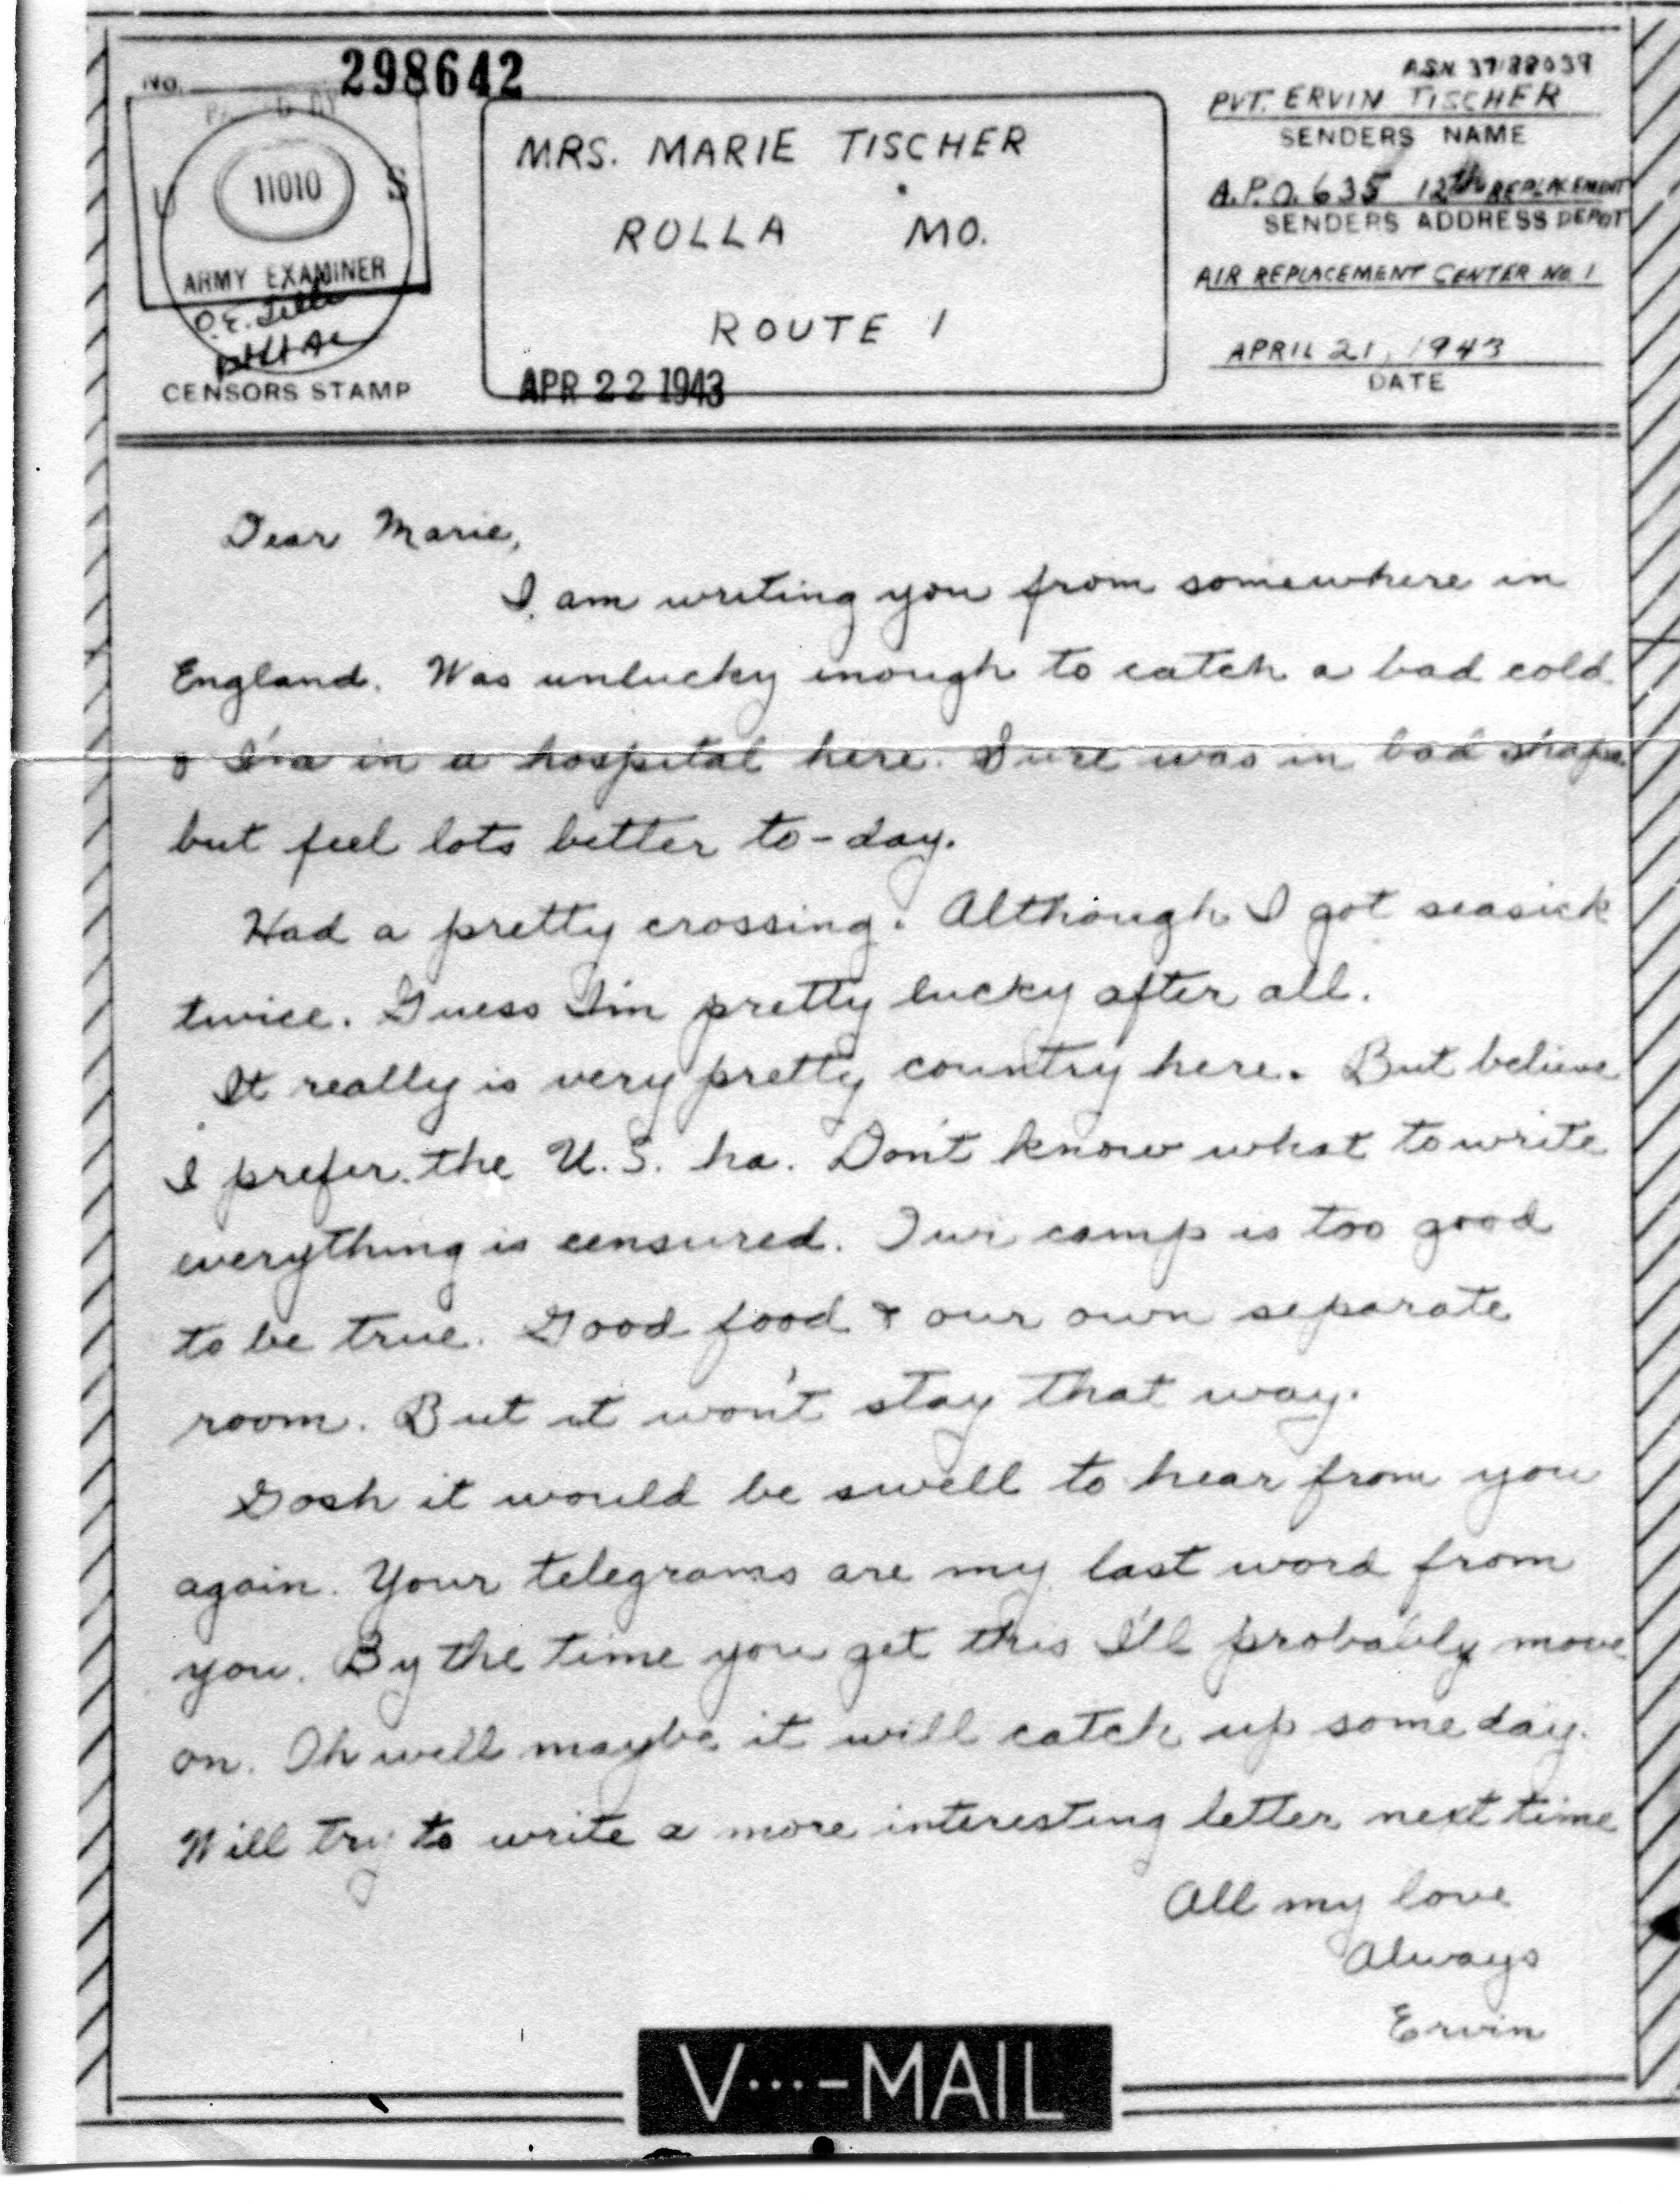 No. 298642
PASSED BY
U 11010 S
ARMY EXAMINER
CENSORS STAMP
MRS. MARIE TISCHER
ROLLA MO.
ROUTE 1
APR 22 1943
ASN 37188039
PVT. ERVIN TISCHER
SENDERS NAME
A.P.O. 635 12th REPLACEMENT
SENDERS ADDRESS DEPOT
AIR REPLACEMENT CENTER No. 1
APRIL 21, 1943
DATE
Dear Marie,
I am writing you from somewhere in
England. Was unlucky enough to catch a bad cold
& I'm in a hospital here. Sure was in bad shape
but feel lots better to-day.
Had a pretty crossing. Although I got seasick
twice. Guess I'm pretty lucky after all.
It really is very pretty country here. But believe
I prefer the U.S. ha. Don't know what to write
everything is censured. Our camp is too good
to be true. Good food & our own separate
room. But it won't stay that way.
Gosh it would be swell to hear from you
again. Your telegrams are my last word from
you. By the time you get this I'll probably move
on. Oh well maybe it will catch up some day.
Will try to write a more interesting letter next time
All my love
Always
Ervin
V...-MAIL